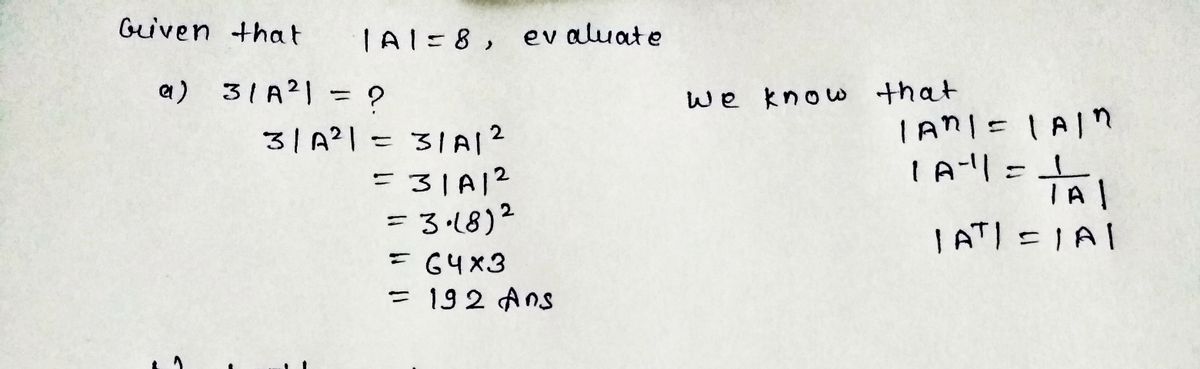 Given that |A| = 8, evaluate
a) 3|A²| = ?
3|A²| = 3|A|²
= 3|A|²
= 3·(8)²
= 64×3
= 192 Ans
we know that
|Aⁿ| = |A|ⁿ
|A⁻¹| = 1/|A|
|Aᵀ| = |A|